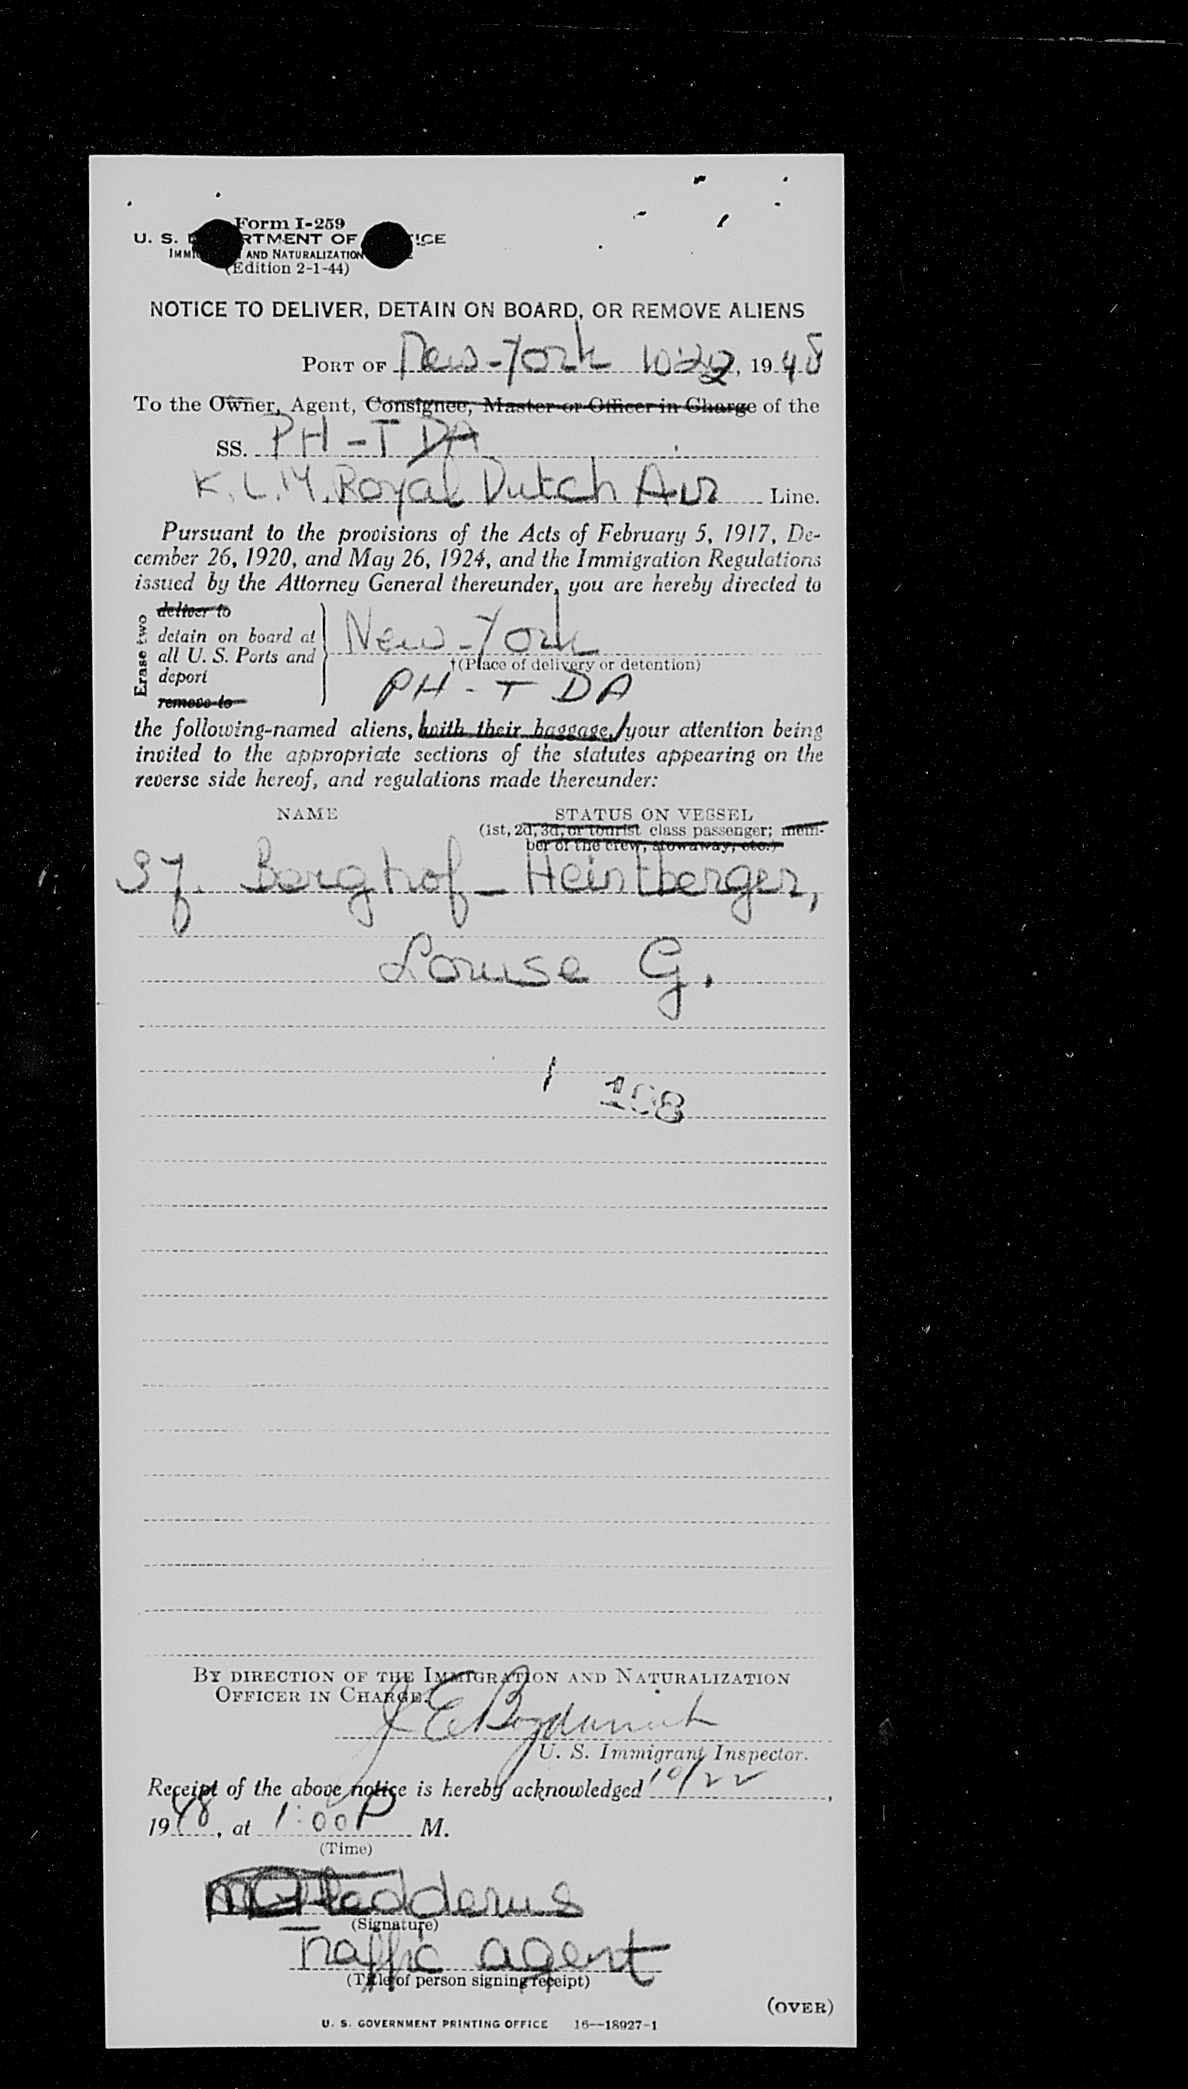 Form I-259
U. S. DEPARTMENT OF JUSTICE
IMMIGRATION AND NATURALIZATION SERVICE
(Edition 2-1-44)
NOTICE TO DELIVER, DETAIN ON BOARD, OR REMOVE ALIENS
PORT OF New-York 10-22, 1948
To the Owner, Agent, Consignee, Master or Officer in Charge of the
SS. PH-TDA
K.L.M. Royal Dutch Air Line.
Pursuant to the provisions of the Acts of February 5, 1917, De-
cember 26, 1920, and May 26, 1924, and the Immigration Regulations
issued by the Attorney General thereunder, you are hereby directed to
Erase two
deliver to
detain on board at
all U. S. Ports and
deport
remove to
New-York
†(Place of delivery or detention)
PH-TDA
the following-named aliens, with their baggage, your attention being
invited to the appropriate sections of the statutes appearing on the
reverse side hereof, and regulations made thereunder:
NAME STATUS ON VESSEL
(1st, 2d, 3d, or tourist class passenger; mem-
ber of the crew, stowaway, etc.)
Berghof-Heintberger,
Louise G.
1 108
BY DIRECTION OF THE IMMIGRATION AND NATURALIZATION
OFFICER IN CHARGE:
U. S. Immigrant Inspector.
Receipt of the above notice is hereby acknowledged 10/22,
1948, at 1:00 P M.
(Time)
(Signature)
Traffic agent
(Title of person signing receipt)
(OVER)
U. S. GOVERNMENT PRINTING OFFICE 16—18927-1